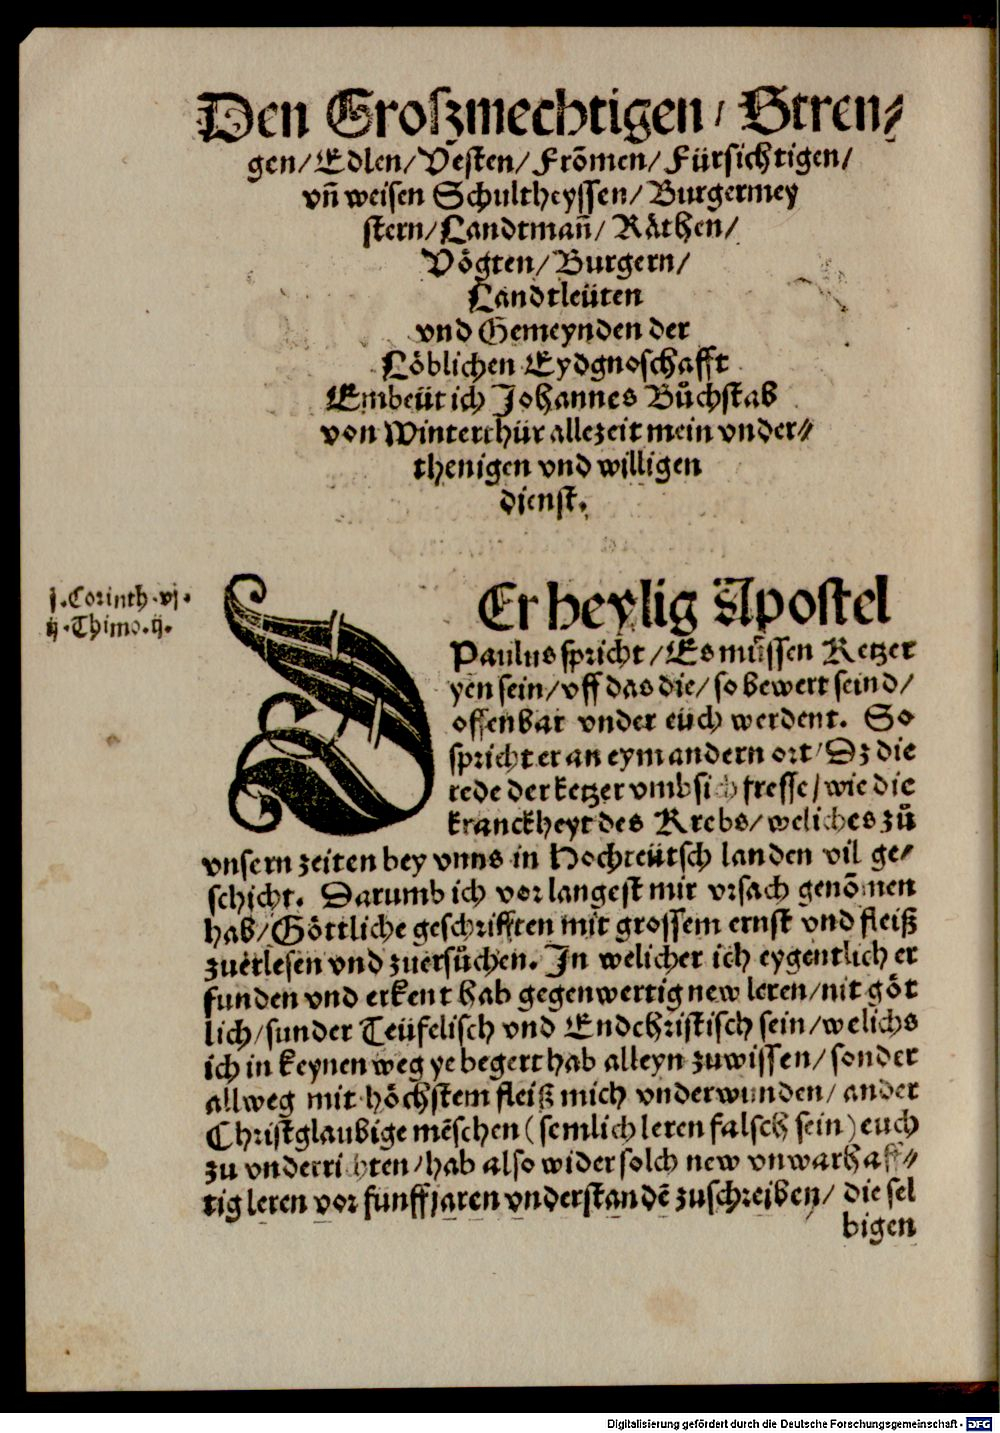 Den Groſzmechtigen/ Stren⸗
gen/ Edlen/ Veſten/ Frõmen/ Fürſichtigen/
vñ weiſen Schultheyſſen/ Burgermey
ſtern/ Landtmañ/ Räthen/
Vögten/ Burgern/
Landtleüten
vnd Gemeynden der
Löblichen Eydgnoſchafft
Embeüt ich Johannes Bůchſtab
von Winterthür allezeit mein vnder⸗
thenigen vnd willigen
dienſt.
j. Corinth. vj.
ij. Thimo. ij.
DEr heylig Apoſtel
Paulus ſpricht/ Es müſſen Ketzer
yen ſein/ vff das die/ ſo bewert ſeind/
offenbar vnder eüch werdent. So
ſpricht er an eym andern ort/ Dz die
rede der ketzer vmb ſich freſſe/ wie die
kranckheyt des Krebs/ weliches zů
vnſern zeiten bey vnns in Hochteütſch landen vil ge⸗
ſchicht. Darumb ich vor langeſt mir vrſach genõmen
hab/ Göttliche geſchrifften mit groſſem ernſt vnd fleiß
zuerleſen vnd zuerſůchen. In welicher ich eygentlich er
funden vnd erkent hab gegenwertig new leren/ nit göt
lich/ ſunder Teüfeliſch vnd Endchriſtiſch ſein/ welichs
ich in keynen weg ye begert hab alleyn zuwiſſen/ ſonder
allweg mit höchſtem fleiß mich vnderwunden/ ander
Chriſtglaubige mẽſchen (ſemlich leren falſch ſein) euch
zu vnderrichten/ hab alſo wider ſolch new vnwarhaff⸗
tig leren vor funff jaren vnderſtandẽ zuſchreiben/ die ſel
bigen
Digitalisierung gefördert durch die Deutsche Forschungsgemeinschaft - DFG